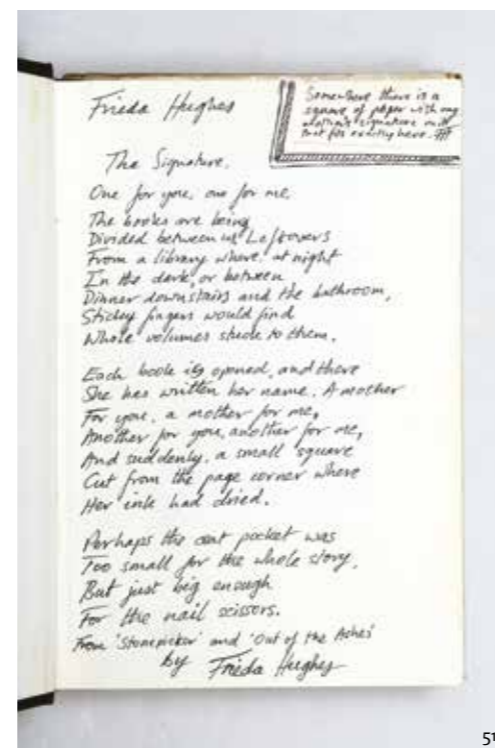 Frieda Hughes
Somewhere there is a
square of paper with my
mother's signature on it
that fits exactly here. FH
The Signature.
One for you, one for me,
The books are being
Divided between us. Leftovers
From a library where, at night
In the dark, or between
Dinner downstairs and the bathroom,
Sticky fingers would find
Whole volumes stuck to them.
Each book is opened, and there
She has written her name. A mother
For you, a mother for me,
Another for you, another for me,
And suddenly, a small square
Cut from the page corner where
Her ink had dried.
Perhaps the coat pocket was
Too small for the whole story,
But just big enough
For the nail scissors.
From 'Stonepicker' and 'Out of the Ashes'
by Frieda Hughes
51